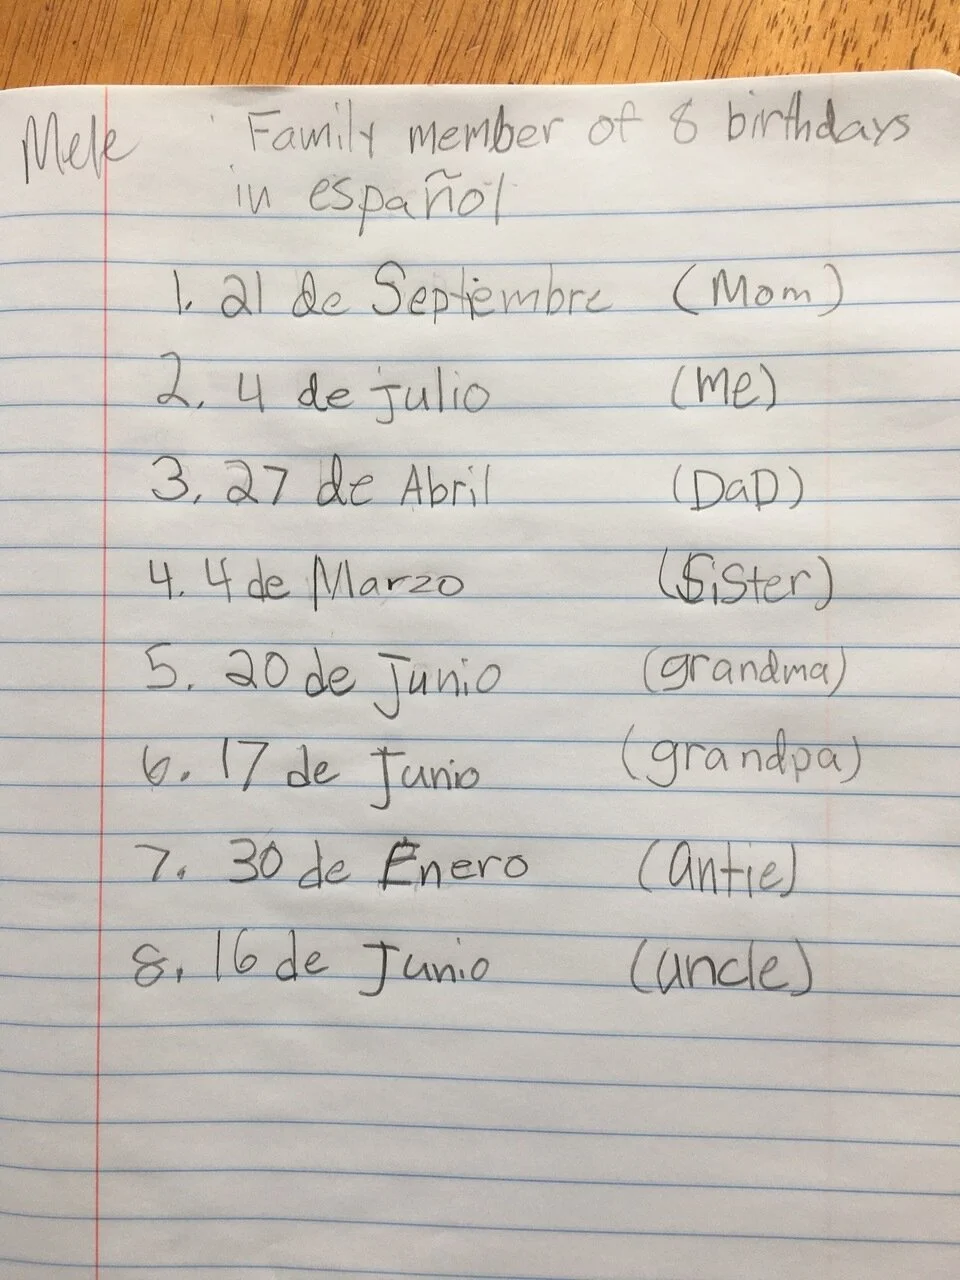 Mele Family member of 8 birthdays
in español
1. 21 de Septiembre (Mom)
2. 4 de julio (me)
3. 27 de Abril (DaD)
4. 4 de Marzo (SiSter)
5. 20 de Junio (grandma)
6. 17 de Junio (grandpa)
7. 30 de Enero (antie)
8. 16 de Junio (uncle)